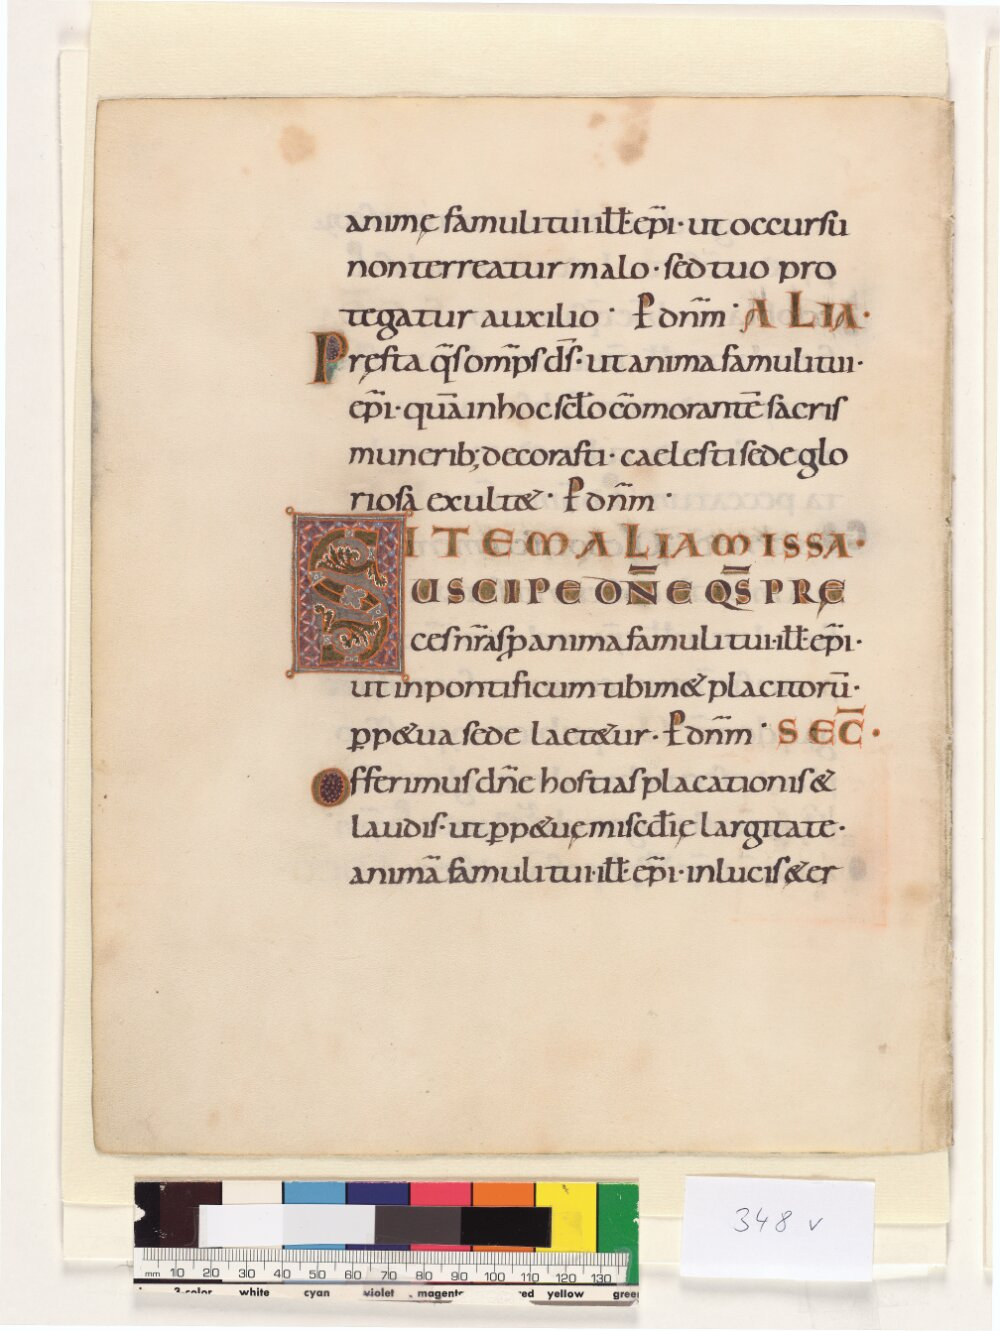 animę famuli tui ill̄ ep̄i · ut occursu
non terreatur malo · sed tuo pro
tegatur auxilio · ꝑ dnm̄ · ALIA ·
Pręsta q̄s omp̄s d̄s · ut anima famuli tui ·
ep̄i · quā in hoc scl̄o cōmorantē sacris
munerib; decorasti · caelesti sede glo
riosa exultet · ꝑ dnm̄ ·
ITEM ALIA MISSA ·
SUSCIPE DN̄E QS̄ PRE
ces nr̄as ꝓ anima famuli tui · ill̄ ep̄i ·
ut in pontificum tibimet placitorū ·
ꝑpetua sede laetetur · ꝑ dnm̄ · SEC̄ ·
Offerimus dn̄e hostias placationis et
laudis · ut ꝑpetuę miscd̄ię largitate ·
animā famuli tui · ill̄ ep̄i · in lucis et er
348 v
mm 10 20 30 40 50 60 70 80 90 100 110 120 130
3-color white cyan violet magenta red yellow green